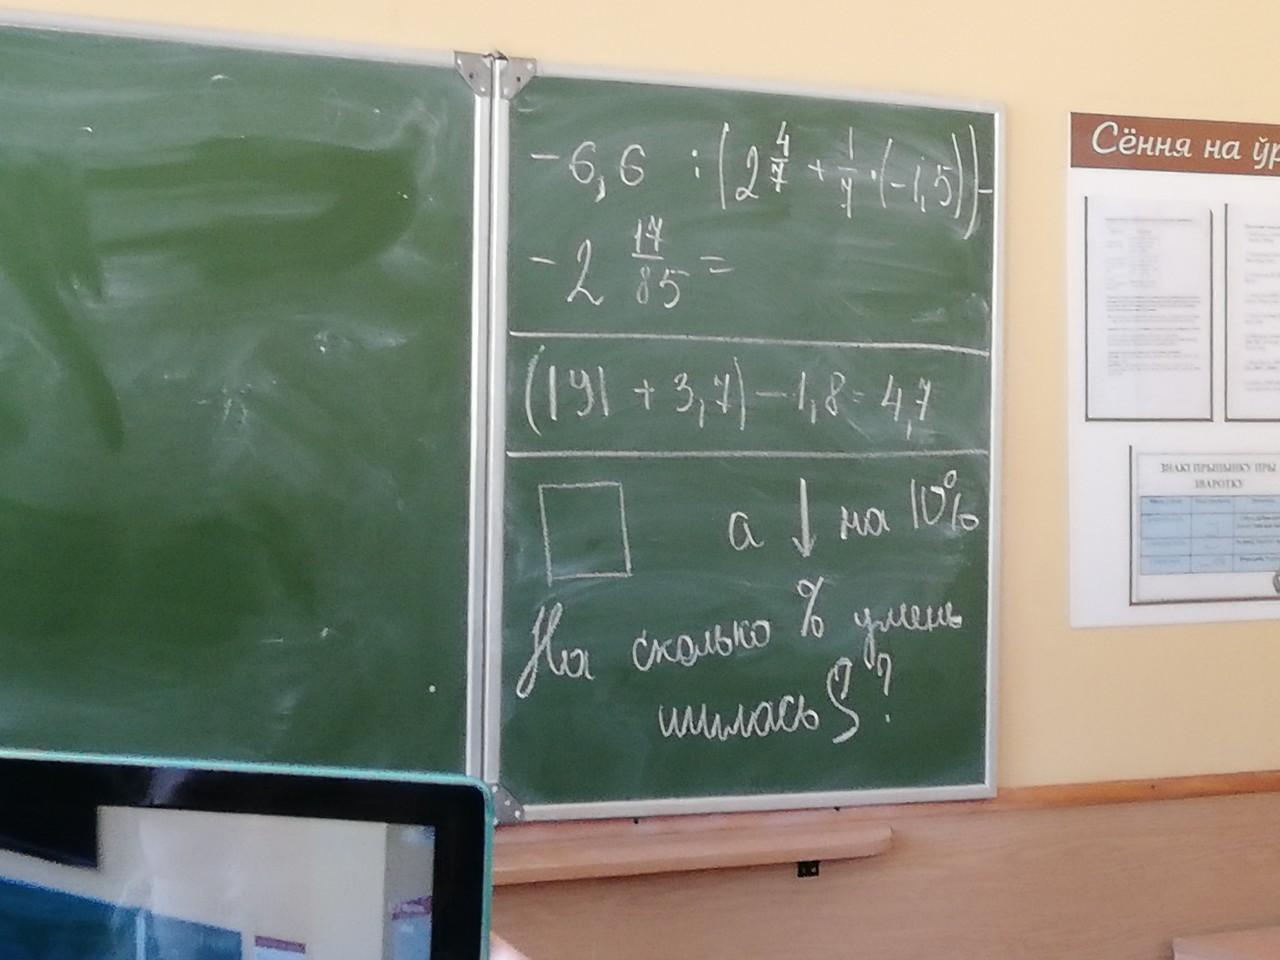 -6,6 : (2 4/7 + 1/7 · (-1,5)) -
- 2 17/85 =
(|y| + 3,7) - 1,8 = 4,7
a ↓ на 10%
На сколько % умень
шилась S?
Сёння на ўр
ЗНАКІ ПРЫПЫНКУ ПРЫ
ЗВАРОТКУ